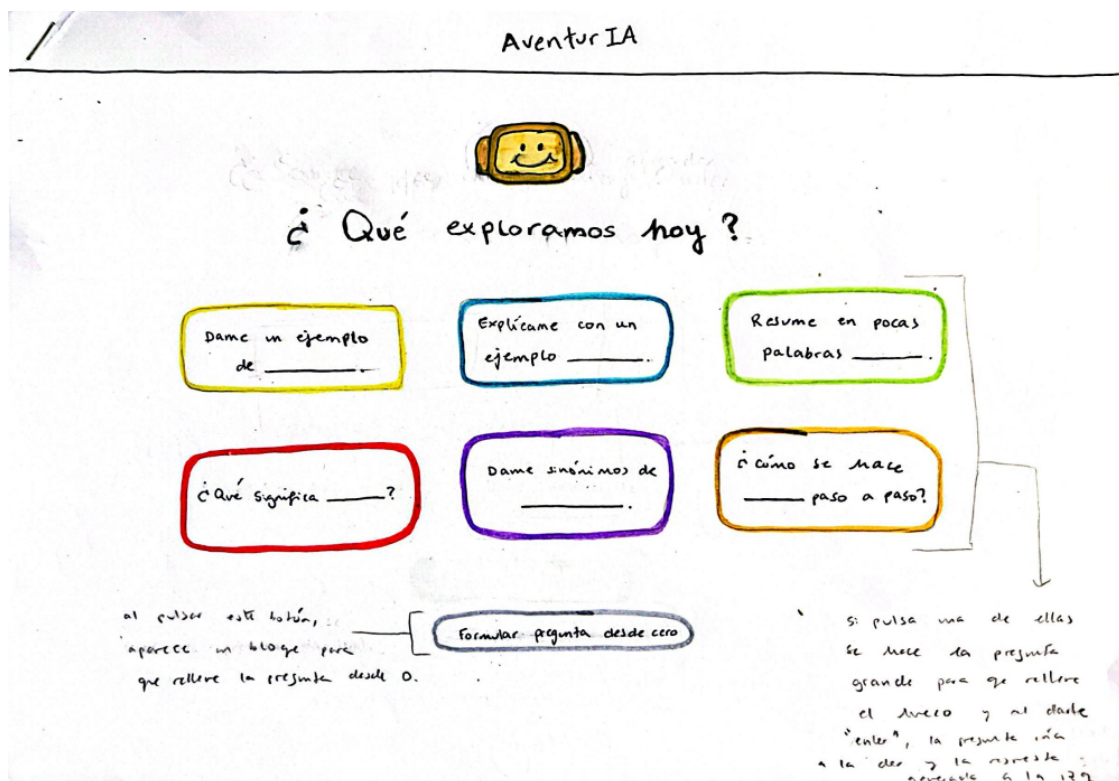 AventurIA
¿Qué exploramos hoy?
Dame un ejemplo
de ______.
Explícame con un
ejemplo ______.
Resume en pocas
palabras ______.
¿Qué significa ______?
Dame sinónimos de
______.
¿Cómo se hace
______ paso a paso?
al pulsar este botón,
aparece un bloqe para
que rellene la pregunta desde 0.
Formular pregunta desde cero
si pulsa una de ellas
se hace la pregunta
grande para qe rellene
el hueco y al darle
"enter", la pregunta irá
a la der y la respuesta
aparecerá a la izq